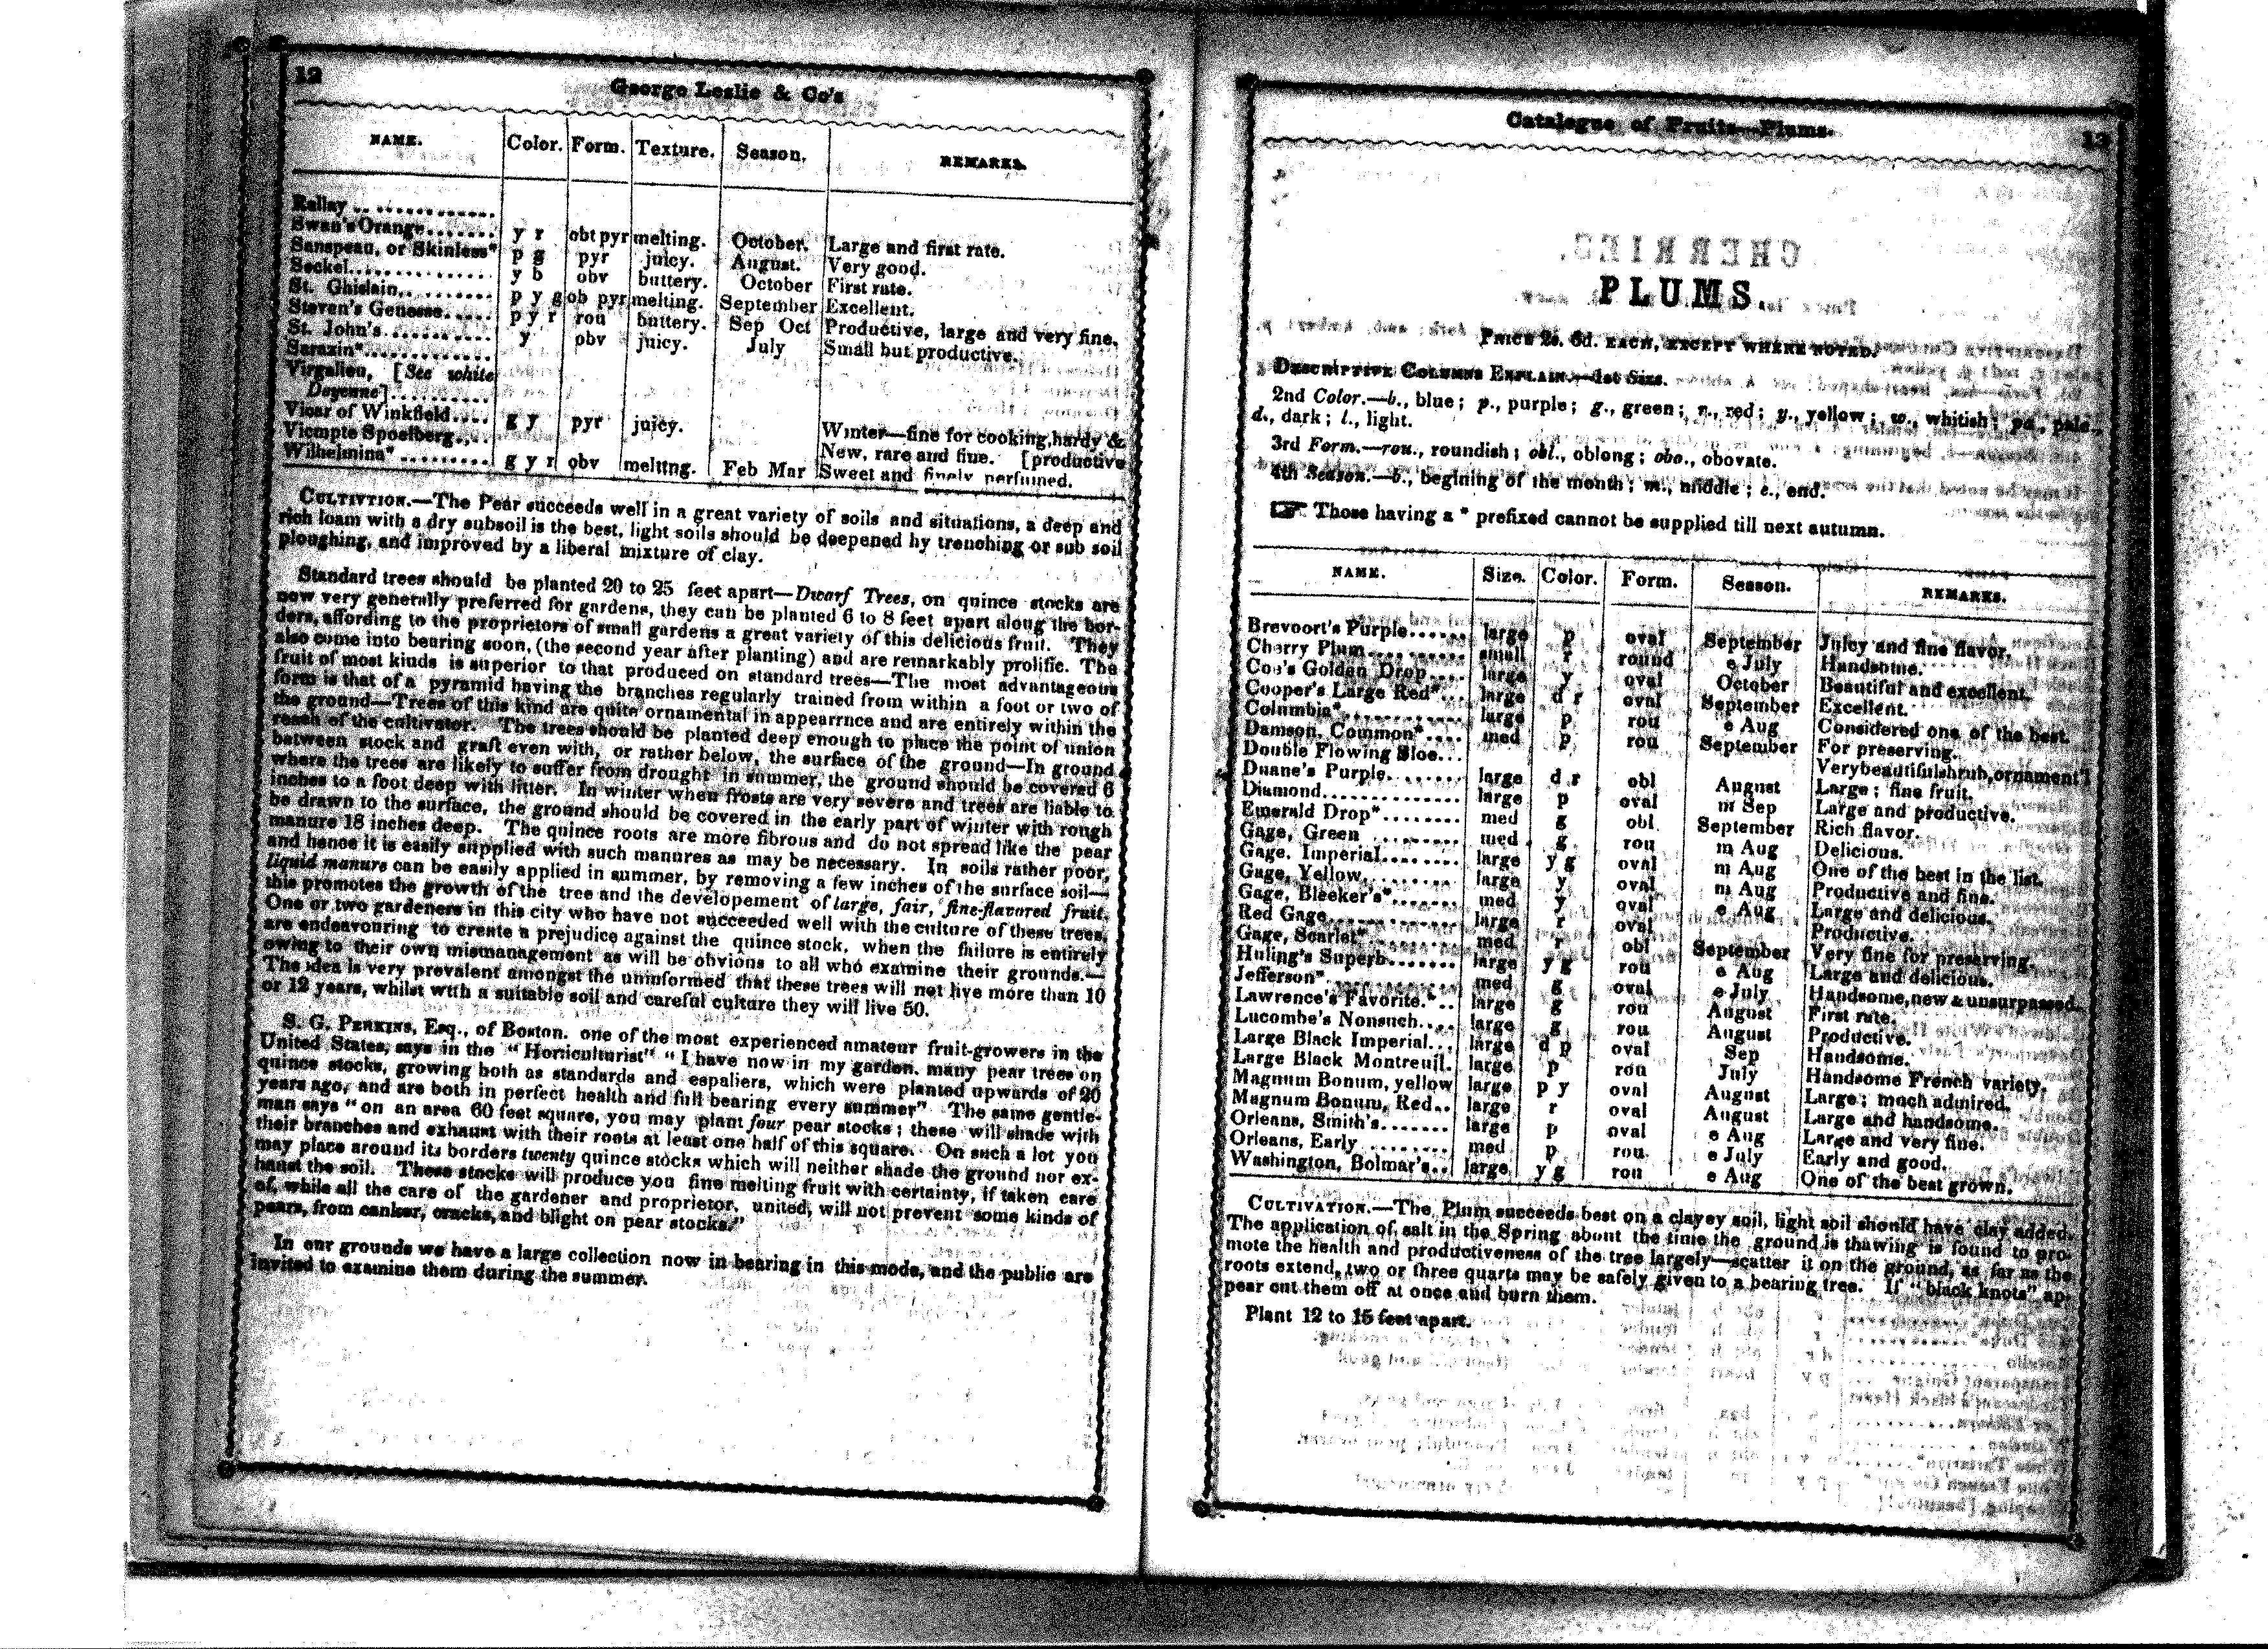 12
George Leslie & Co's
NAME. Color. Form. Texture. Season. REMARKS.
Rallay
Swan's Orange........ y r obt pyr melting. October. Large and first rate.
Sanspeau, or Skinless* p g pyr juicy. August. Very good.
Seckel............... y b obv buttery. October First rate.
St. Ghislain.......... p y g ob pyr melting. September Excellent.
Steven's Genesse..... p y r rou buttery. Sep Oct Productive, large and very fine,
St. John's.......... y obv juicy. July Small but productive.
Sarazin*..............
Virgalieu, [See white
Doyenne]..........
Vicar of Winkfield.... g y pyr juicy. Winter—fine for cooking,hardy &
Vicompte Spoelberg..... New, rare and fine. [productive
Wilhelmina* ......... g y r obv melttng. Feb Mar Sweet and finely perfumed.
CULTIVTION.—The Pear succeeds well in a great variety of soils and situations, a deep and
rich loam with a dry subsoil is the best, light soils should be deepened hy trenching or sub soil
ploughing, and improved by a liberal mixture of clay.
Standard trees should be planted 20 to 25 feet apart—Dwarf Trees, on quince stocks are
now very generally preferred for gardens, they can be planted 6 to 8 feet apart along the bor-
ders, affording to the proprietors of small gardens a great variety of this delicious fruit. They
also come into bearing soon, (the second year after planting) and are remarkably prolific. The
fruit of most kinds is superior to that produced on standard trees—The most advantageous
form is that of a pyramid having the branches regularly trained from within a foot or two of
the ground—Trees of this kind are quite ornamental in appearrnce and are entirely within the
reach of the cultivator. The trees should be planted deep enough to place the point of union
between stock and graft even with, or rather below, the surface of the ground—In ground
where the trees are likely to suffer from drought in summer, the ground should be covered 6
inches to a foot deep with litter. In winter when frosts are very severe and trees are liable to
be drawn to the surface, the ground should be covered in the early part of winter with rough
manure 18 inches deep. The quince roots are more fibrous and do not spread like the pear
and hence it is easily supplied with such manures as may be necessary. In soils rather poor,
liquid manure can be easily applied in summer, by removing a few inches of the surface soil—
this promotes the growth of the tree and the developement of large, fair, fine-flavored fruit.
One or two gardeners in this city who have not succeeded well with the culture of these trees,
are endeavouring to create a prejudice against the quince stock, when the failure is entirely
owing to their own mismanagement as will be obvious to all who examine their grounds.—
The idea is very prevalent amongst the uninformed that these trees will not live more than 10
or 12 years, whilst wtth a suitable soil and careful culture they will live 50.
S. G. PERKINS, Esq., of Boston. one of the most experienced amateur fruit-growers in the
United States, says in the "Horticulturist" "I have now in my garden. many pear trees on
quince stocks, growing both as standards and espaliers, which were planted upwards of 20
years ago, and are both in perfect health and full bearing every summer" The same gentle-
man says "on an area 60 feet square, you may plant four pear stocks; these will shade with
their branches and exhaust with their roots at least one half of this square. On such a lot you
may place around its borders twenty quince stocks which will neither shade the ground nor ex-
haust the soil. These stocks will produce you fine melting fruit with certainty, if taken care
of, while all the care of the gardener and proprietor, united, will not prevent some kinds of
pears, from canker, cracks, and blight on pear stocks."
In our grounds we have a large collection now in bearing in this mode, and the public are
invited to examine them during the summer.
Catalogue of Fruits—Plums.
13
PLUMS.
PRICE 2s. 6d. EACH, EXCEPT WHERE NOTED.
DESCRIPTIVE COLUMNS EXPLAIN.—1st SIZE.
2nd Color.—b., blue; p., purple; g., green; r., red; y., yellow; w., whitish; pa., pale.,
d., dark; l., light.
3rd Form.—rou., roundish; obl., oblong; obo., obovate.
4th Season.—b., begining of the month; m., middle; e., end.
☞ Those having a * prefixed cannot be supplied till next autumn.
NAME. Size. Color. Form. Season. REMARKS.
Brevoort's Purple...... large p oval September Juicy and fine flavor.
Cherry Plum.......... small r round e July Handsome.
Coe's Golden Drop.... large y oval October Beautiful and excellent.
Cooper's Large Red*... large d r oval September Excellent.
Columbia*............ large p rou e Aug Considered one of the best.
Damson, Common*.... med p rou September For preserving.
Double Flowing Sloe... Verybeautifulshrub,ornament'l
Duane's Purple........ large d r obl August Large; fine fruit.
Diamond.............. large p oval m Sep Large and productive.
Emerald Drop*........ med g obl September Rich flavor.
Gage, Green ......... med. g rou m Aug Delicious.
Gage. Imperial........ large y g oval m Aug One of the best in the list.
Gage, Yellow.......... large y oval m Aug Productive and fine.
Gage, Bleeker's*....... med y oval e Aug Large and delicious.
Red Gage............. large r oval Productive.
Gage, Scarlet*......... med r obl September Very fine for preserving.
Huling's Superb....... large y g rou e Aug Large and delicious.
Jefferson*............. med g oval e July Handsome, new & unsurpassed.
Lawrence's Favorite.*.. large g rou August First rate.
Lucombe's Nonsuch.... large g rou August Productive.
Large Black Imperial... large d p oval Sep Handsome.
Large Black Montreuil. large p rou July Handsome French variety.
Magnum Bonum, yellow large p y oval August Large; much admired.
Magnum Bonum, Red.. large r oval August Large and handsome.
Orleans, Smith's....... large p oval e Aug Large and very fine.
Orleans, Early ........ med p rou e July Early and good.
Washington, Bolmar's.. large y g rou e Aug One of the best grown.
CULTIVATION.—The Plum succeeds best on a clayey soil, light soil should have clay added.
The application of salt in the Spring about the time the ground is thawing is found to pro-
mote the health and productiveness of the tree largely—scatter it on the ground, as far as the
roots extend, two or three quarts may be safely given to a bearing tree. If "black knots" ap-
pear cut them off at once and burn them.
Plant 12 to 15 feet apart.